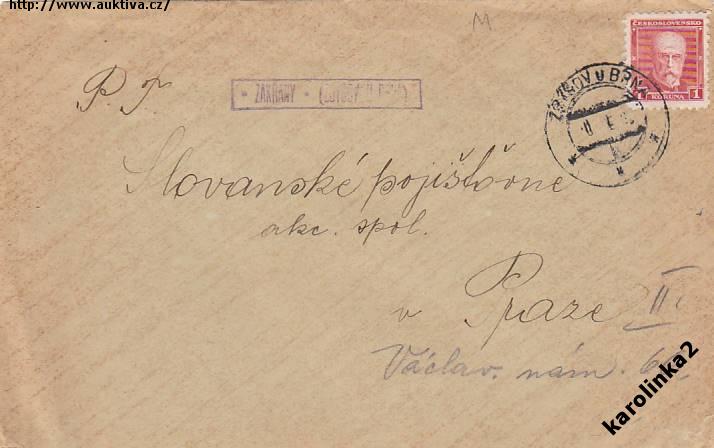 http://www.auktiva.cz/
M
ČESKOSLOVENSKO
1 KORUNA 1
U BRNA
P. T.
ZAKŘANY
Slovanské pojišťovne
akc. spol.
v Praze II.
Václav. nám.
karolinka2